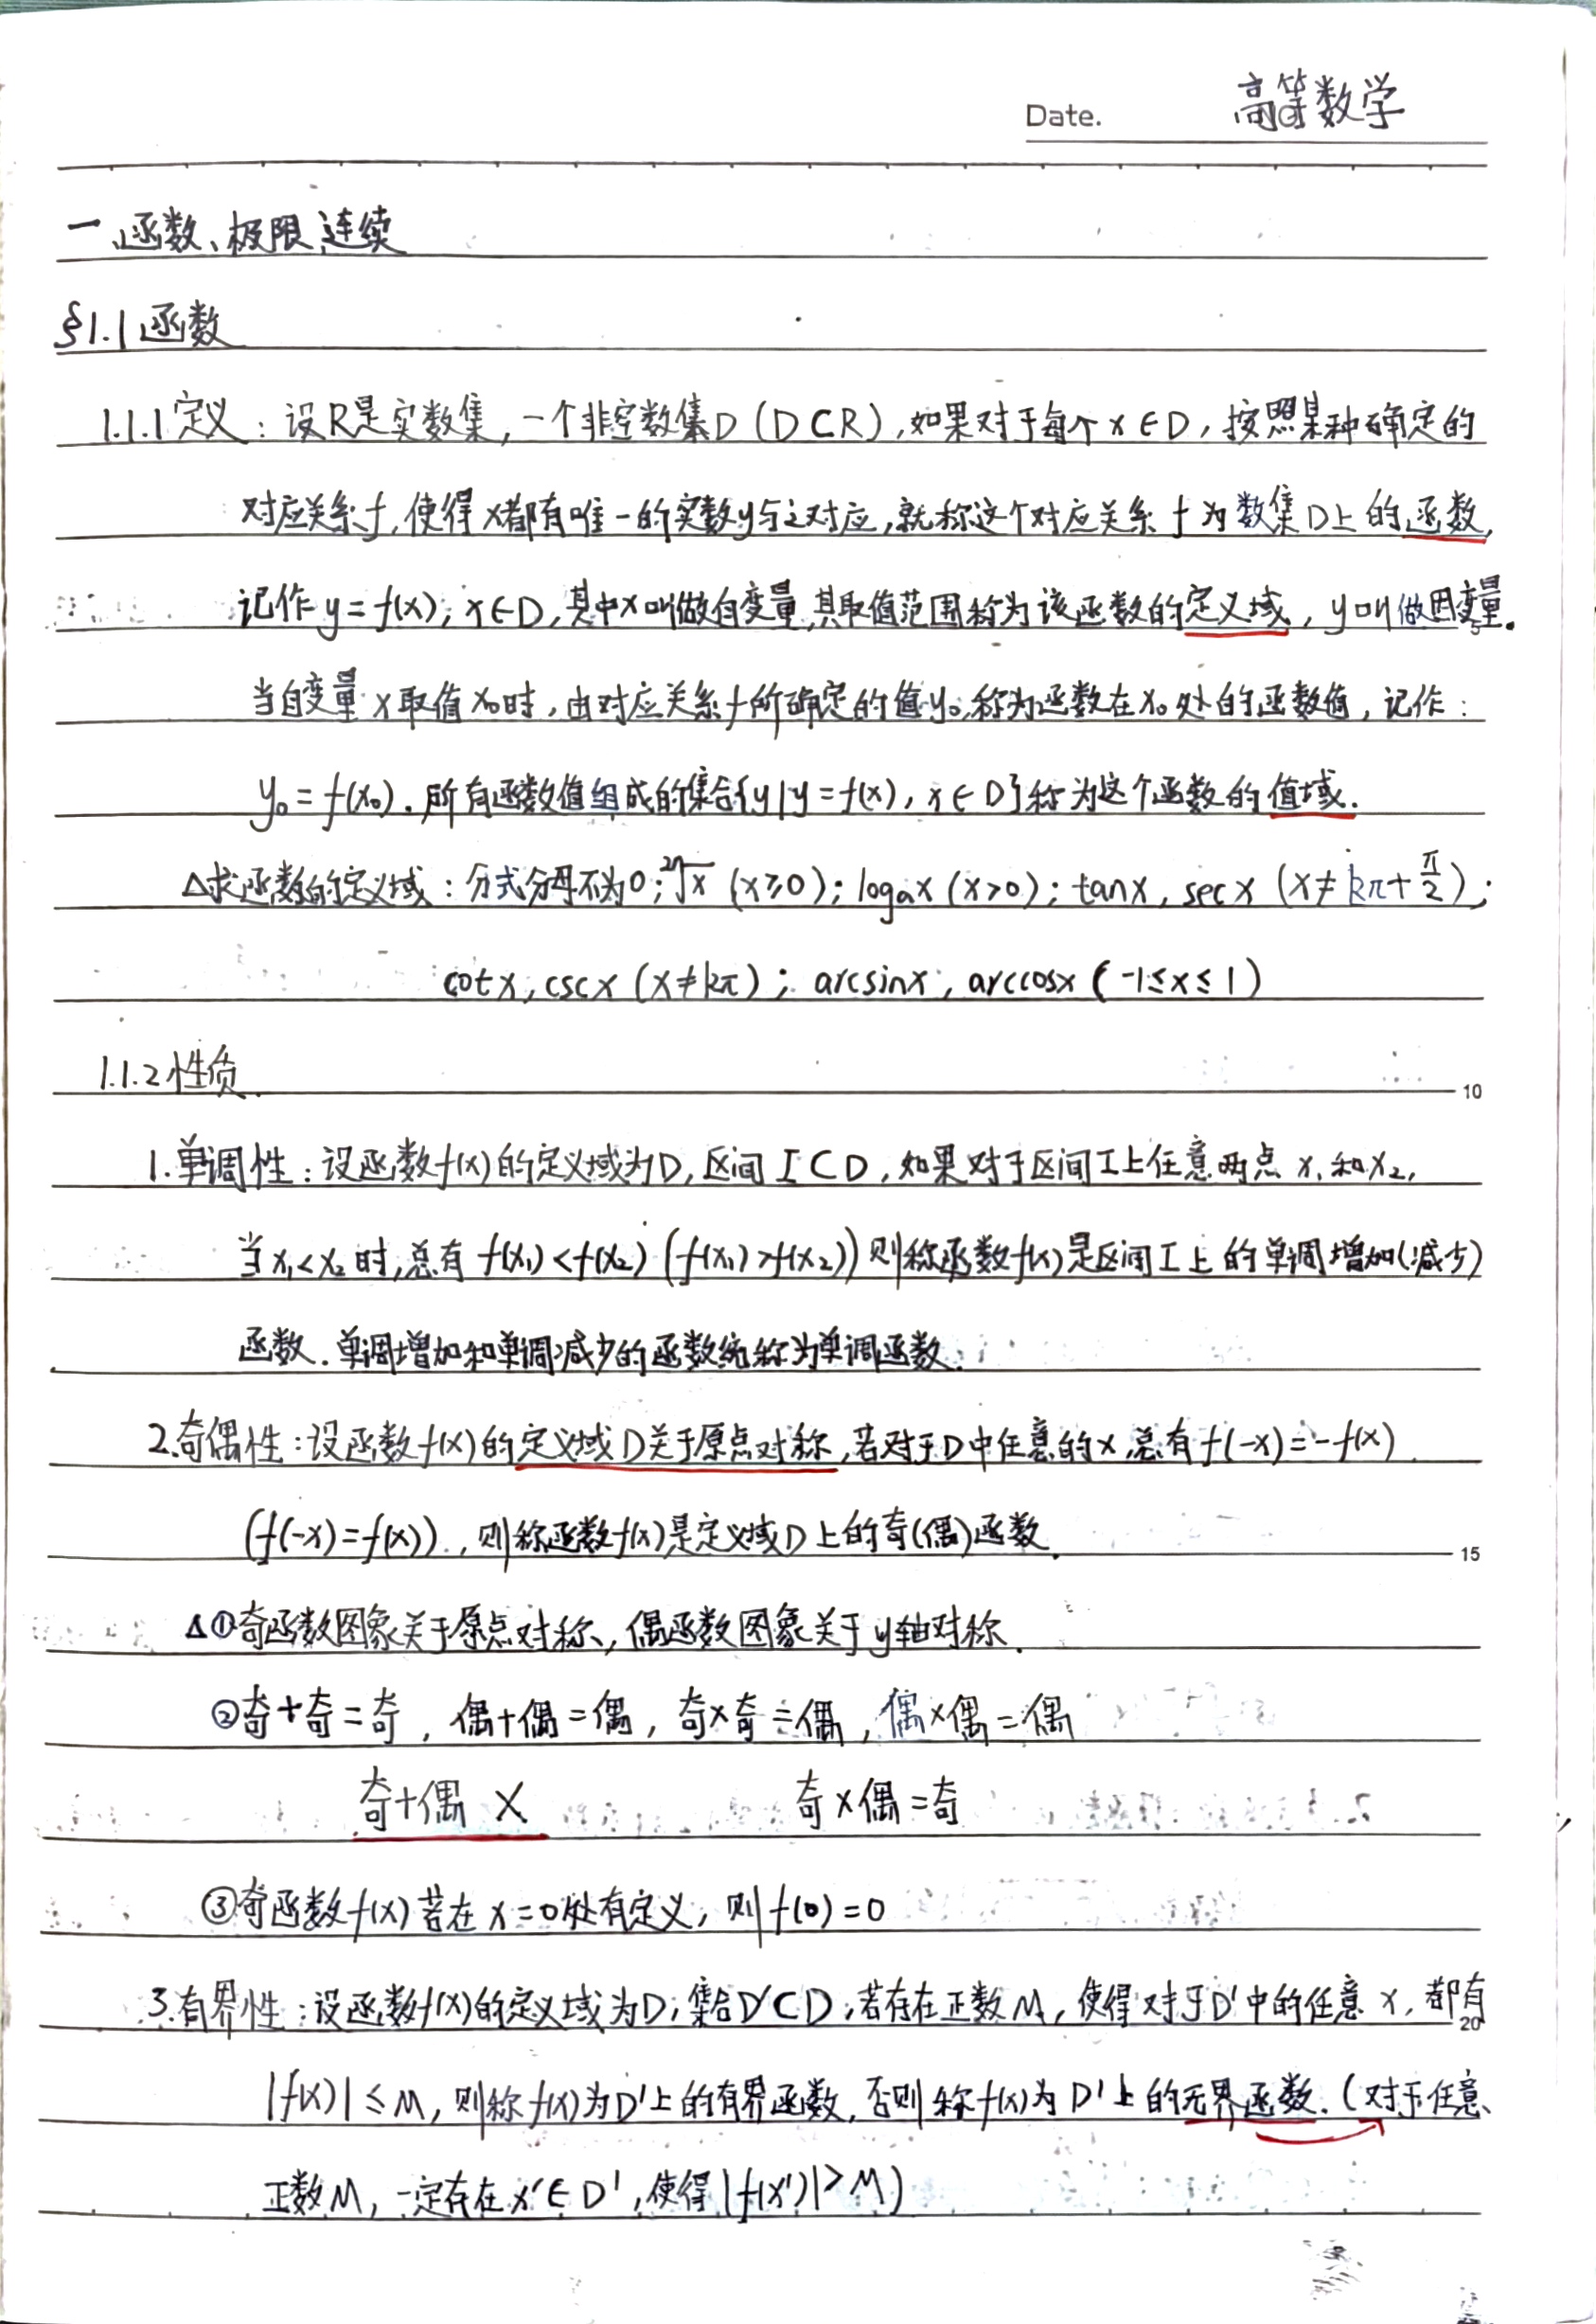 Date. 高等数学
一、函数、极限、连续
§1.1 函数
1.1.1 定义：设R是实数集，一个非空数集D（D⊂R），如果对于每个x∈D，按照某种确定的
对应关系f，使得x都有唯一的实数y与之对应，就称这个对应关系f为数集D上的函数，
记作y=f(x)，x∈D，其中x叫做自变量，其取值范围称为该函数的定义域，y叫做因变量。
5
当自变量x取值x₀时，由对应关系f所确定的值y₀，称为函数在x₀处的函数值，记作：
y₀=f(x₀)．所有函数值组成的集合{y|y=f(x)，x∈D}称为这个函数的值域．
△求函数的定义域：分式分母不为0；²ⁿ√x（x≥0）；logₐx（x>0）；tanx，secx（x≠kπ+π/2）；
cotx，cscx（x≠kπ）；arcsinx，arccosx（-1≤x≤1）
1.1.2 性质
10
1.单调性：设函数f(x)的定义域为D，区间I⊂D，如果对于区间I上任意两点x₁和x₂，
当x₁<x₂时，总有f(x₁)<f(x₂)（f(x₁)>f(x₂)）则称函数f(x)是区间I上的单调增加(减少)
函数．单调增加和单调减少的函数统称为单调函数．
2.奇偶性：设函数f(x)的定义域D关于原点对称，若对于D中任意的x，总有f(-x)=-f(x)
（f(-x)=f(x)），则称函数f(x)是定义域D上的奇(偶)函数．
15
△①奇函数图象关于原点对称，偶函数图象关于y轴对称．
②奇+奇=奇，偶+偶=偶，奇×奇=偶，偶×偶=偶
奇+偶 ×　奇×偶=奇
③奇函数f(x)若在x=0处有定义，则f(0)=0
3.有界性：设函数f(x)的定义域为D，集合D'⊂D，若存在正数M，使得对于D'中的任意x，都有
20
|f(x)|≤M，则称f(x)为D'上的有界函数，否则称f(x)为D'上的无界函数．（对于任意
正数M，一定存在x'∈D'，使得|f(x')|>M）